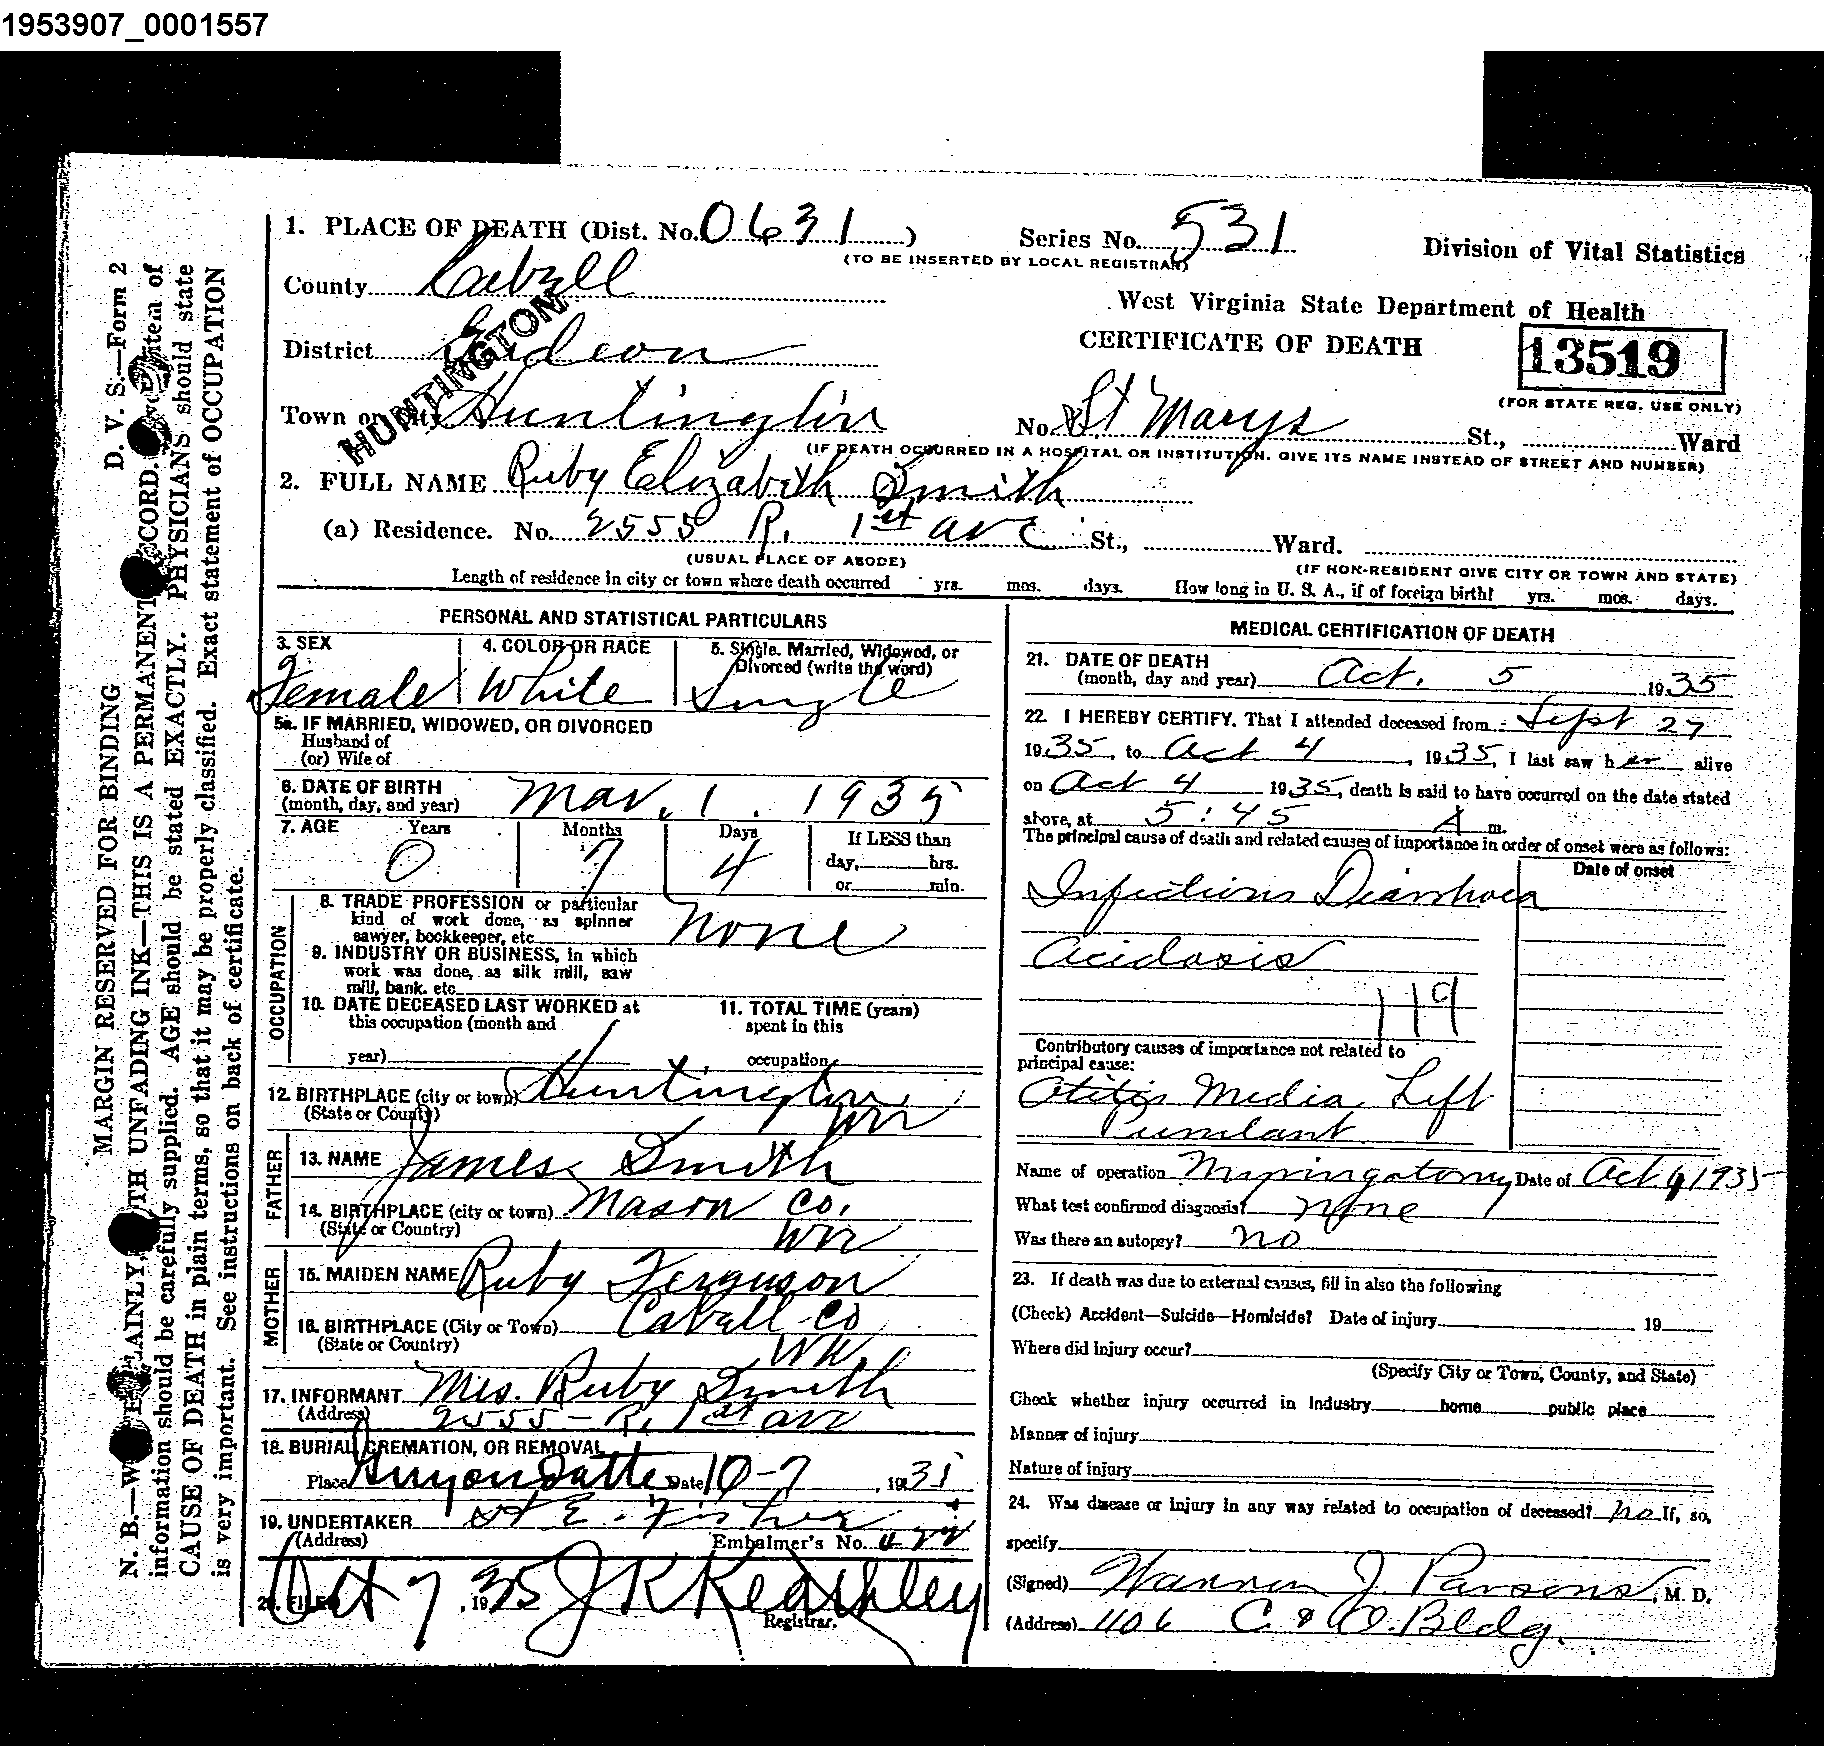 1953907_0001557
1. PLACE OF DEATH (Dist. No. 0631)
Series No. 531
(TO BE INSERTED BY LOCAL REGISTRAR)
Division of Vital Statistics
County Cabell
West Virginia State Department of Health
CERTIFICATE OF DEATH
13519
(FOR STATE REG. USE ONLY)
District Gideon
HUNTINGTON
Town or City Huntington
No. St Marys St., Ward
(IF DEATH OCCURRED IN A HOSPITAL OR INSTITUTION. GIVE ITS NAME INSTEAD OF STREET AND NUMBER)
2. FULL NAME Ruby Elizabeth Smith
(a) Residence. No. 2555 R. 1st ave St., Ward.
(USUAL PLACE OF ABODE)
(IF NON-RESIDENT GIVE CITY OR TOWN AND STATE)
Length of residence in city or town where death occurred yrs. mos. days. How long in U. S. A., if of foreign birth? yrs. mos. days.
PERSONAL AND STATISTICAL PARTICULARS
3. SEX
Female
4. COLOR OR RACE
White
5. Single. Married, Widowed, or
Divorced (write the word)
Single
5a. IF MARRIED, WIDOWED, OR DIVORCED
Husband of
(or) Wife of
6. DATE OF BIRTH
(month, day, and year) Mar. 1. 1935
7. AGE Years Months Days If LESS than
0 7 4 day, hrs.
or min.
OCCUPATION
8. TRADE PROFESSION or particular
kind of work done, as spinner
sawyer, bookkeeper, etc. none
9. INDUSTRY OR BUSINESS, in which
work was done, as silk mill, saw
mill, bank. etc
10. DATE DECEASED LAST WORKED at
this occupation (month and
year)
11. TOTAL TIME (years)
spent in this
occupation
12. BIRTHPLACE (city or town) Huntington
(State or County) WVa
FATHER
13. NAME James Smith
14. BIRTHPLACE (city or town) Mason Co,
(State or Country) WVa
MOTHER
15. MAIDEN NAME Ruby Ferguson
16. BIRTHPLACE (City or Town) Cabell Co
(State or Country) WVa
17. INFORMANT Mrs. Ruby Smith
(Address) 2555 - R. 1st ave
18. BURIAL, CREMATION, OR REMOVAL
Place Guyandatte Date 10-7, 1935
19. UNDERTAKER E. Fisher
(Address) Embalmer's No.
20. FILED Oct 7, 1935 J R Keashley
Registrar.
MEDICAL CERTIFICATION OF DEATH
21. DATE OF DEATH
(month, day and year) Oct. 5 1935
22. I HEREBY CERTIFY. That I attended deceased from Sept 27
1935, to Oct 4, 1935, I last saw her alive
on Oct 4 1935, death is said to have occurred on the date stated
above, at 5:45 A m.
The principal cause of death and related causes of importance in order of onset were as follows:
Date of onset
Infectious Diarrhoea
Acidosis
119
Contributory causes of importance not related to
principal cause:
Otitis Media Left
Purulant
Name of operation Myringotomy Date of Oct 4, 1935
What test confirmed diagnosis? none
Was there an autopsy? no
23. If death was due to external causes, fill in also the following
(Check) Accident—Suicide—Homicide? Date of injury 19
Where did injury occur?
(Specify City or Town, County, and State)
Check whether injury occurred in Industry home public place
Manner of injury
Nature of injury
24. Was disease or injury in any way related to occupation of deceased? no If, so,
specify
(Signed) Warren J. Parsons, M. D.
(Address) 1106 C. & O. Bldg.
D. V. S.—Form 2
MARGIN RESERVED FOR BINDING
N. B.—WRITE PLAINLY, WITH UNFADING INK—THIS IS A PERMANENT RECORD. Every item of
information should be carefully supplied. AGE should be stated EXACTLY. PHYSICIANS should state
CAUSE OF DEATH in plain terms, so that it may be properly classified. Exact statement of OCCUPATION
is very important. See instructions on back of certificate.